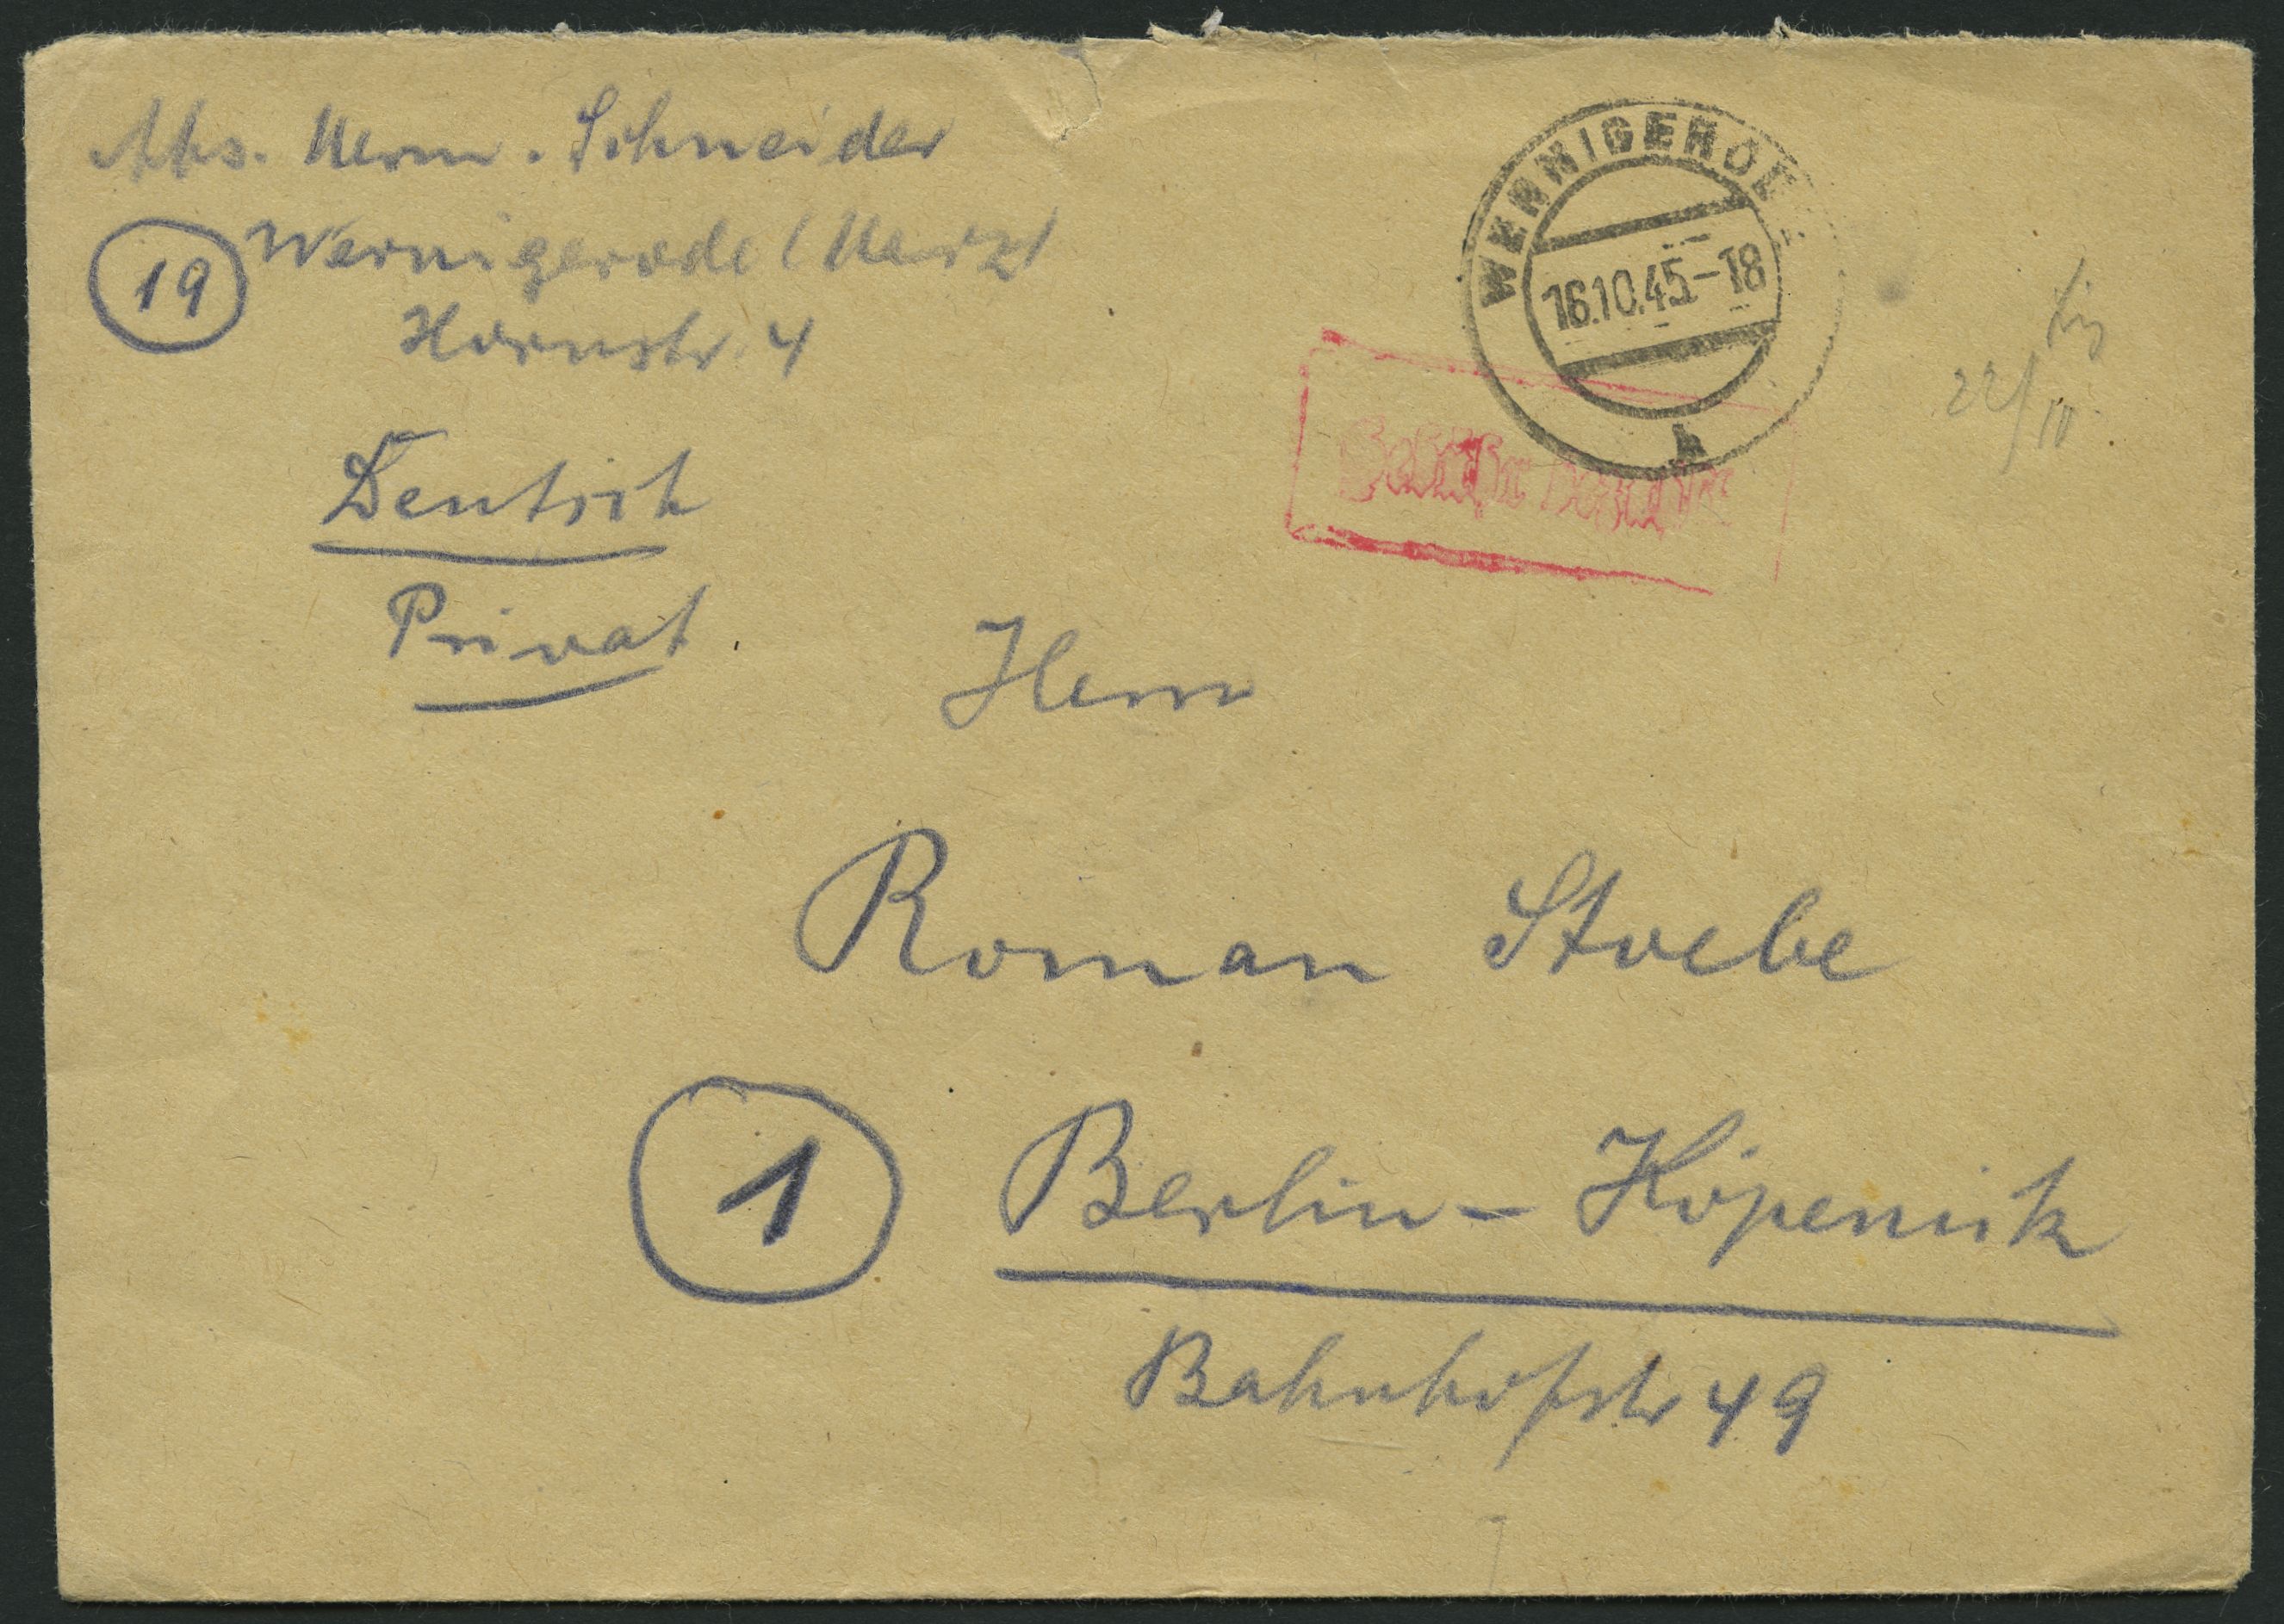 Abs. Herm. Schneider
19 Wernigerode (Harz)
Hornstr. 4
Deutsch
Privat
WERNIGERODE
16.10.45-18
h
Gebühr bezahlt
22/10
Herrn
Roman Stoebe
1 Berlin-Köpenick
Bahnhofstr 49